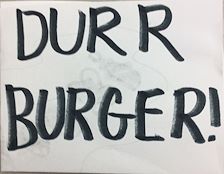 DURR
BURGER!